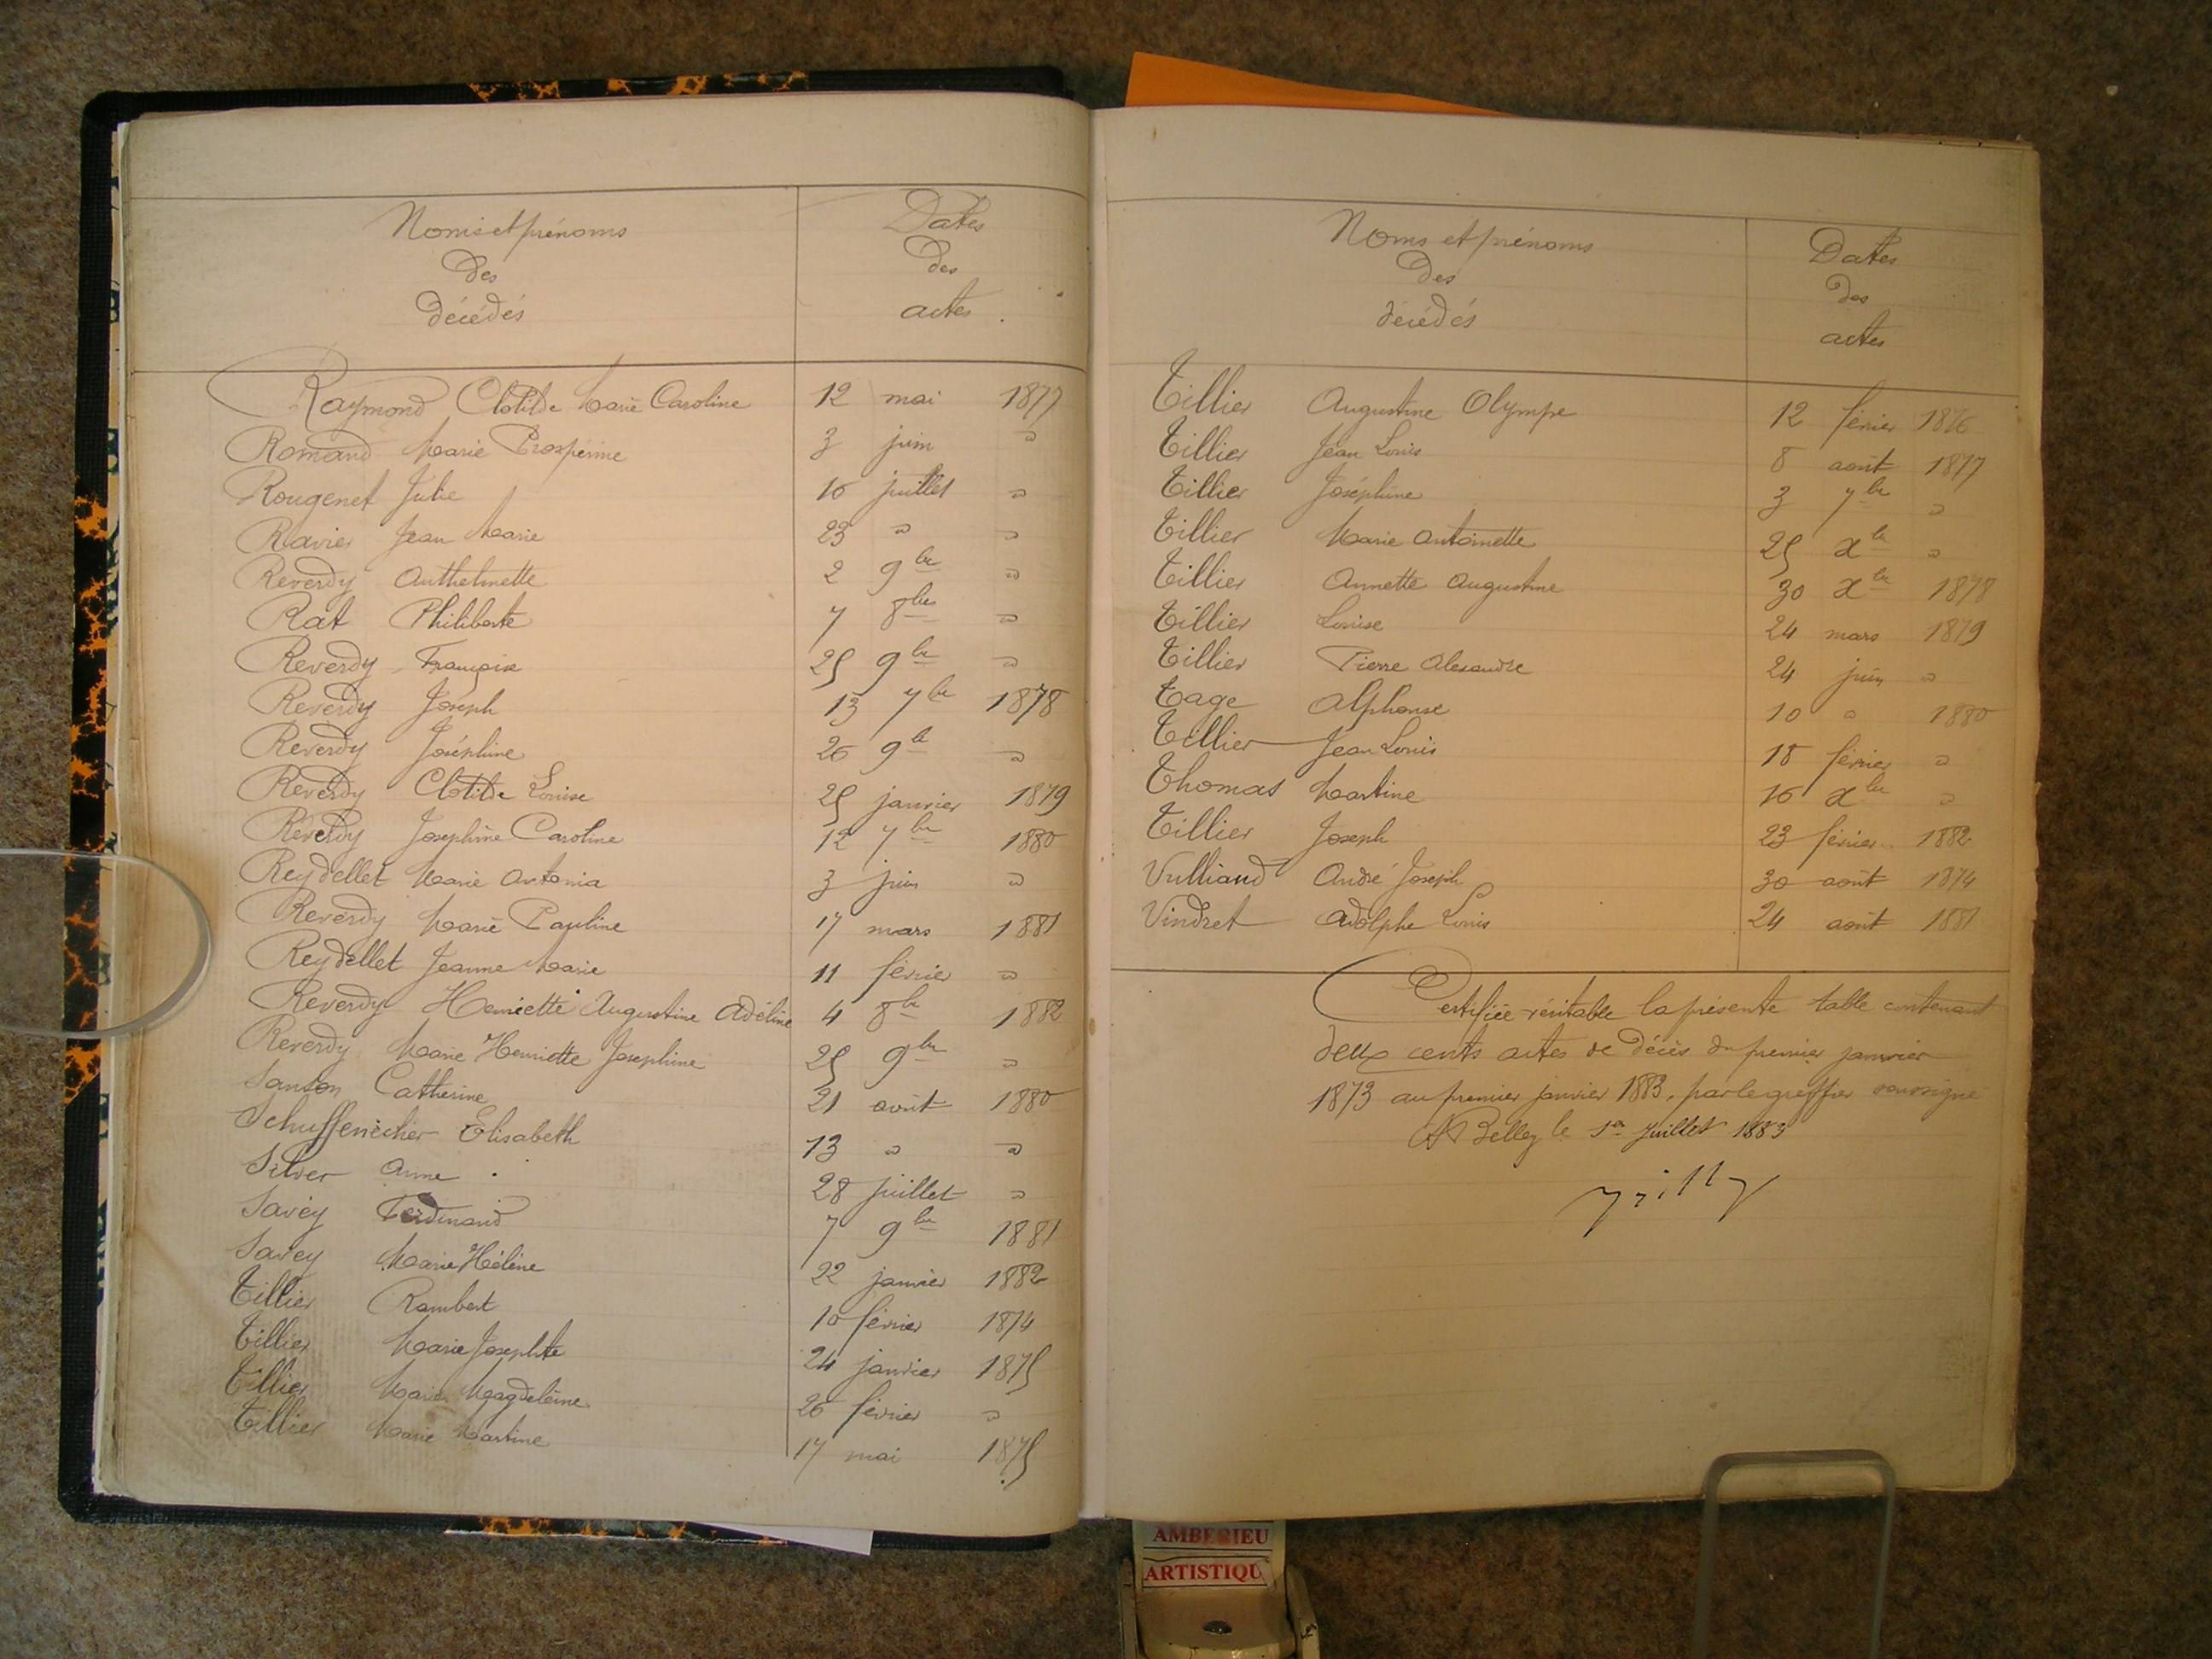 Noms et prénoms
des
décédés
Dates
des
actes
Raymond Clotilde Marie Caroline 12 mai 1877
Romand Marie Prospérine 3 juin "
Rougenet Julie 16 juillet "
Ravier Jean Marie 23 " "
Reverdy Anthelmette 2 9bre "
Rat Philiberte 7 8bre "
Reverdy Françoise 25 9bre "
Reverdy Joseph 13 7bre 1878
Reverdy Joséphine 26 9bre "
Reverdy Clotilde Louise 25 janvier 1879
Reverdy Joséphine Caroline 12 7bre 1880
Reydellet Marie Antonia 3 juin "
Reverdy Marie Pauline 17 mars 1881
Reydellet Jeanne Marie 11 février "
Reverdy Henriette Augustine Adéline 4 8bre 1882
Reverdy Marie Henriette Joséphine 25 9bre "
Sanson Catherine 21 août 1880
Schuffenècher Elisabeth 13 " "
Silver Anne 28 juillet "
Savey Ferdinand 7 9bre 1881
Savey Marie Hélène 22 janvier 1882
Tillier Rambert 10 février 1874
Tillier Marie Josephte 24 janvier 1875
Tillier Marie Magdeleine 26 février "
Tillier Marie Martine 17 mai 1875
Noms et prénoms
des
décédés
Dates
des
actes
Tillier Augustine Olympe 12 février 1876
Tillier Jean Louis 8 août 1877
Tillier Joséphine 3 7bre "
Tillier Marie Antoinette 25 Xbre "
Tillier Annette Augustine 30 Xbre 1878
Tillier Louise 24 mars 1879
Tillier Pierre Alexandre 24 juin "
Tage Alphonse 10 " 1880
Tillier Jean Louis 18 février "
Thomas Martine 16 Xbre "
Tillier Joseph 23 février 1882
Vulliaud André Joseph 30 août 1874
Vindret Adolphe Louis 24 août 1881
Certifiée véritable la présente table contenant
deux cents actes de décès du premier janvier
1873 au premier janvier 1883, par le greffier soussigné
A Belley le 1er Juillet 1883
AMBERIEU
ARTISTIQU